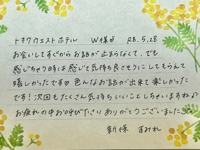 トキワウエストホテル W様 R8.5.28
お会いしてすぐからお話が止まらなくて、でも
感じちゃう時は感じて気持ち良さそうにしてもらえて
嬉しかったです 色んなお話が出来て楽しかった
です！次回もたくさん気持ちいいことしちゃいますね
お疲れの中お呼びだてありがとうございました
新條 すみれ